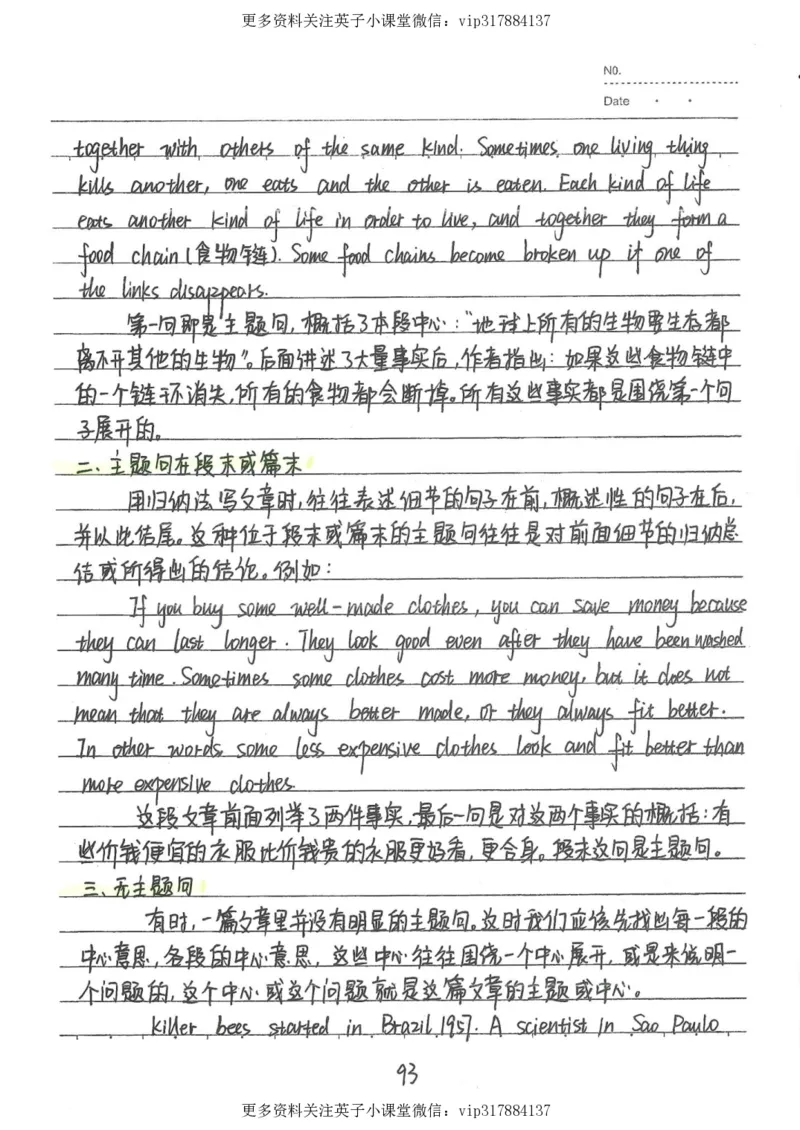 更多资料关注英子小课堂微信：vip317884137
NO.
Date
together with others of the same kind. Sometimes one living thing
kills another, one eats and the other is eaten. Each kind of life
eats another kind of life in order to live, and together they form a
food chain (食物链). Some food chains become broken up if one of
the links disappears.
第一句即是主题句，概括了本段中心："地球上所有的生物要生存都
离不开其他的生物"。后面讲述了大量事实后，作者指出：如果这些食物链中
的一个链环消失，所有的食物都会断掉。所有这些事实都是围绕第一个句
子展开的。
二、主题句在段末或篇末
用归纳法写文章时，往往表述细节的句子在前，概述性的句子在后，
并以此结尾。这种位于段末或篇末的主题句往往是对前面细节的归纳总
结或所得出的结论。例如：
If you buy some well-made clothes, you can save money because
they can last longer. They look good even after they have been washed
many time. Sometimes some clothes cost more money, but it does not
mean that they are always better made, or they always fit better.
In other words, some less expensive clothes look and fit better than
more expensive clothes.
这段文章前面列举了两件事实，最后一句是对这两个事实的概括：有
些价钱便宜的衣服比价钱贵的衣服更好看，更合身。段末这句是主题句。
三、无主题句
有时，一篇文章里并没有明显的主题句。这时我们应该先找出每一段的
中心意思，各段的中心意思，这些中心往往围绕一个中心展开，或是来说明一
个问题的，这个中心或这个问题就是这篇文章的主题或中心。
Killer bees started in Brazil 1957. A scientist in Sao Paulo
93
更多资料关注英子小课堂微信：vip317884137